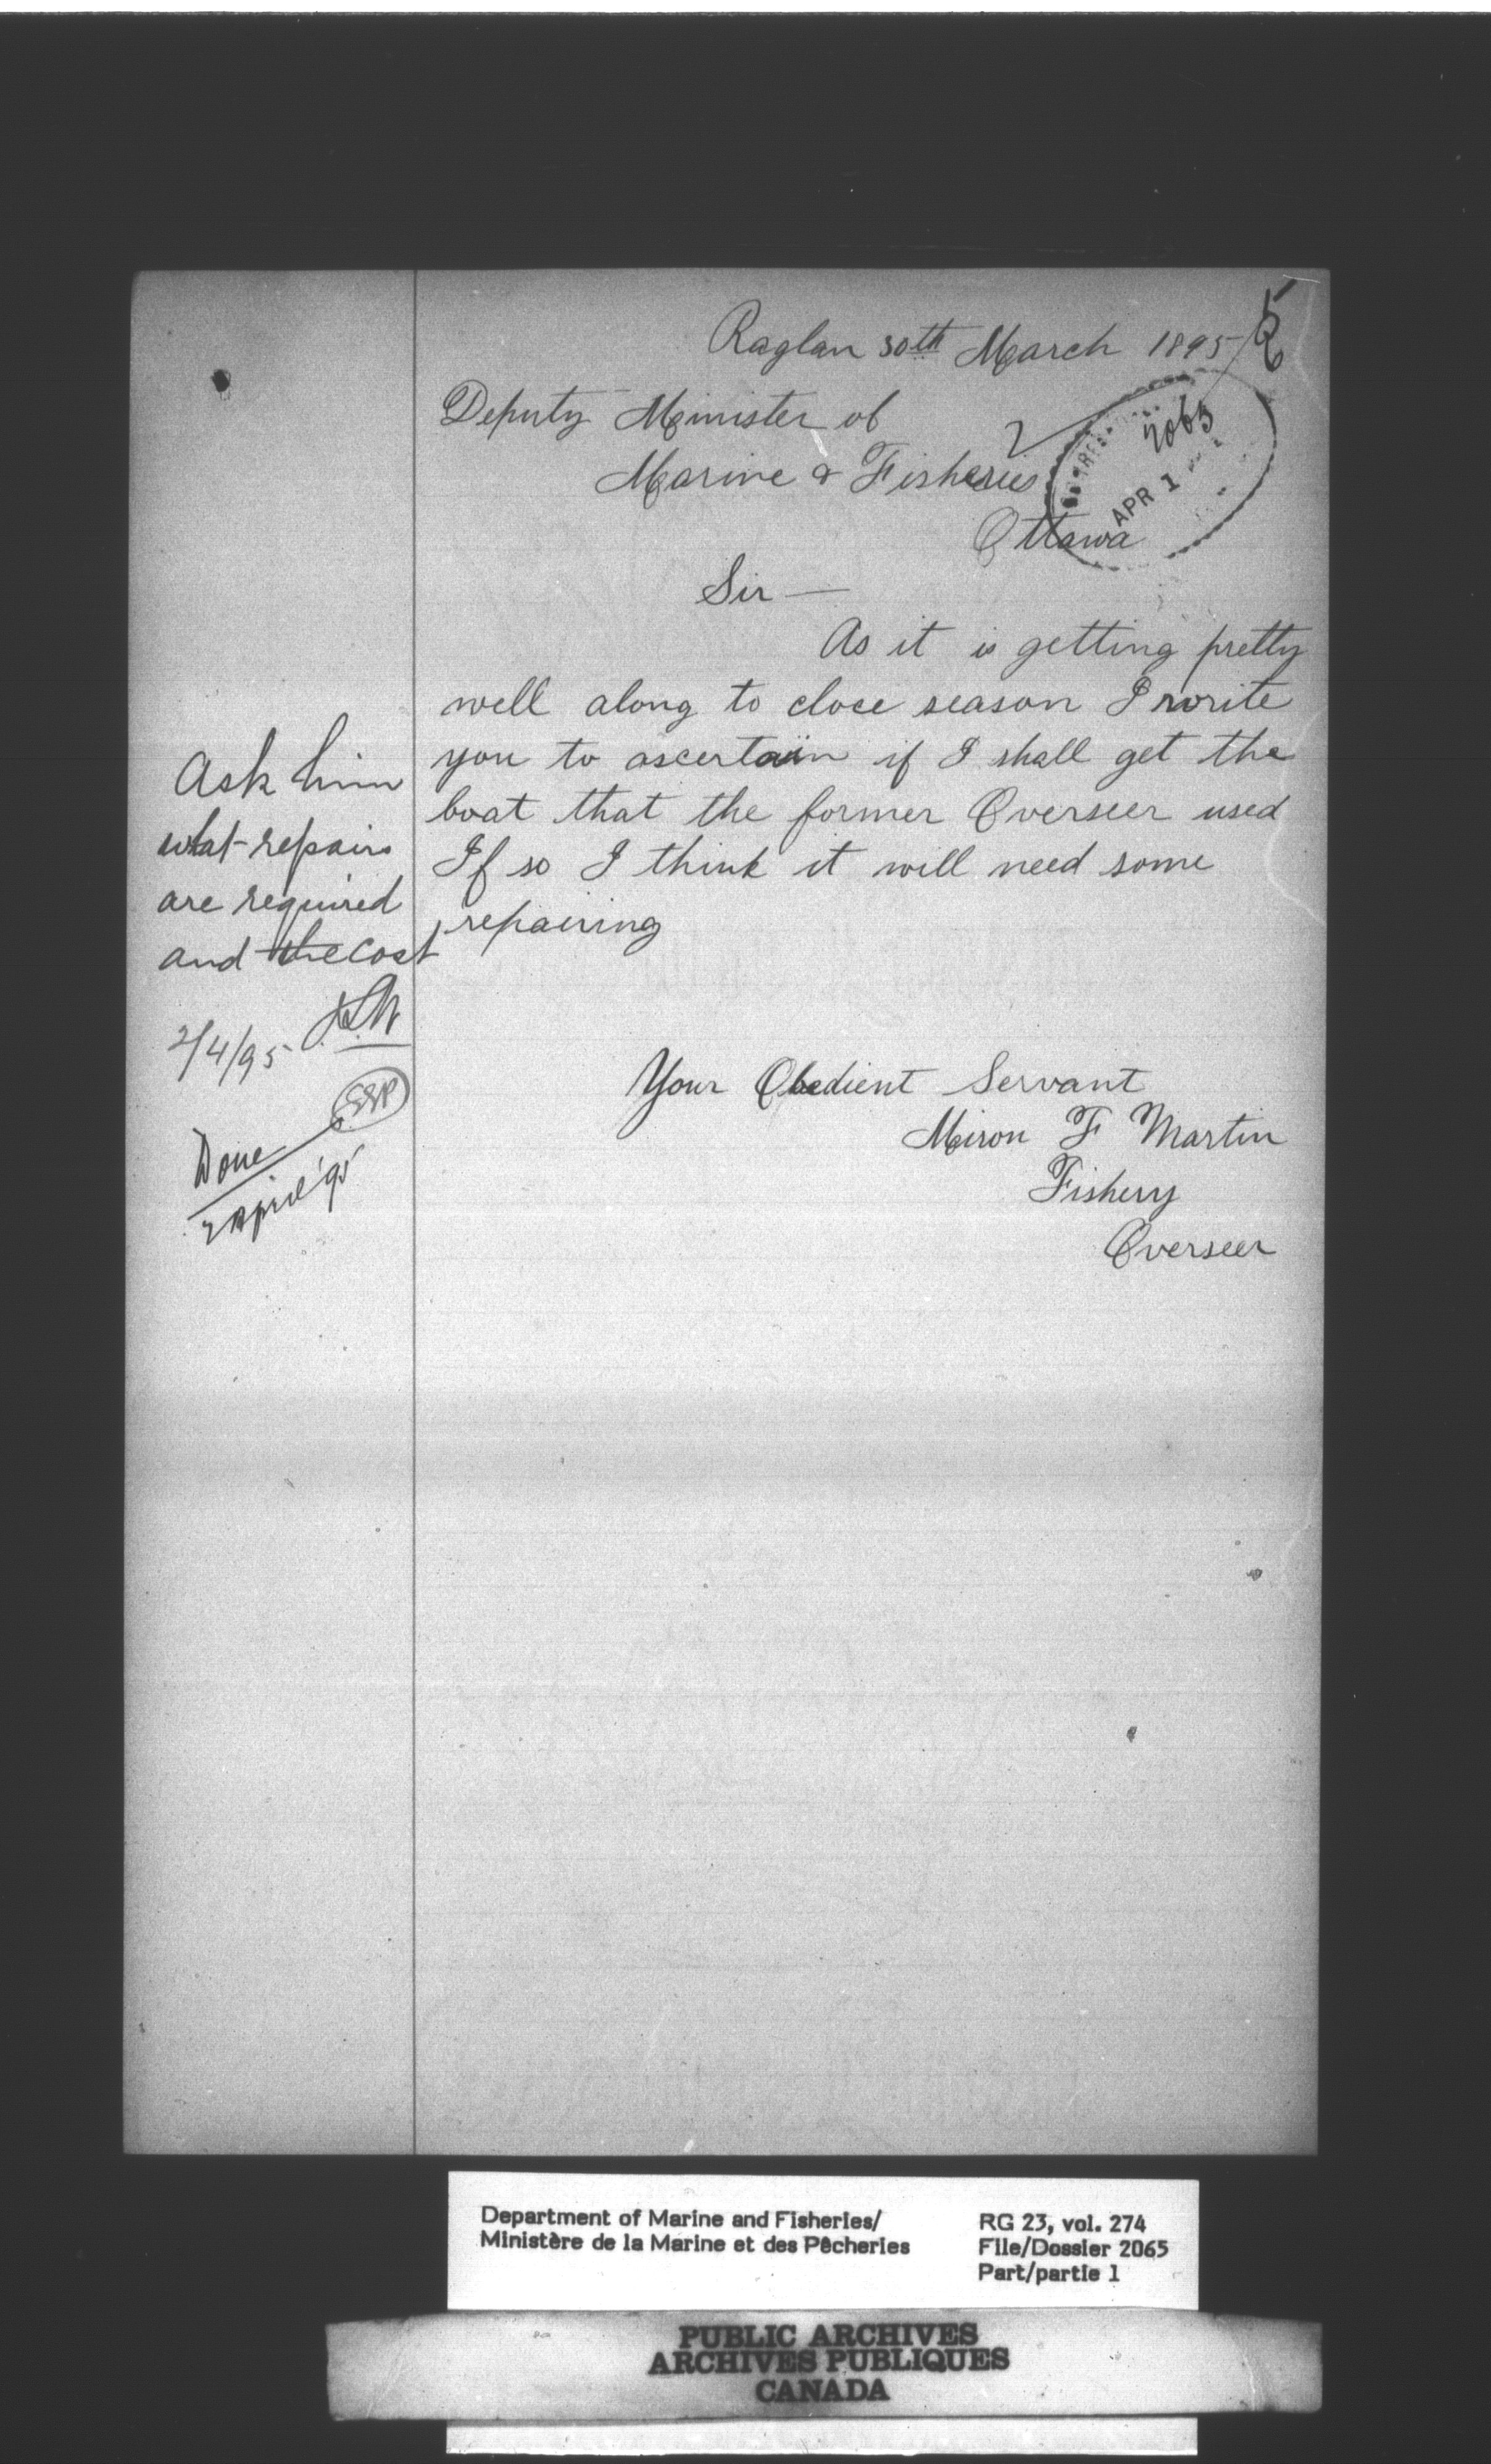 Raglan 30th March 1895
Deputy Minister of
Marine & Fisheries
2065
APR 1
Ottawa
Sir —
As it is getting pretty
well along to close season I write
you to ascertain if I shall get the
boat that the former Overseer used
If so I think it will need some
repairing
Your Obedient Servant
Miron F Martin
Fishery
Overseer
Ask him
what repairs
are required
and the cost
2/4/95
Done
2 April '95
Department of Marine and Fisheries/
Ministère de la Marine et des Pêcheries
RG 23, vol. 274
File/Dossier 2065
Part/partie 1
PUBLIC ARCHIVES
ARCHIVES PUBLIQUES
CANADA